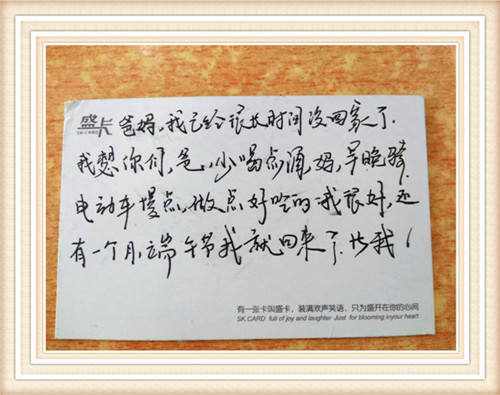 盛卡
SK·CARD
爸妈,我已经很长时间没回家了.
我想你们,爸,少喝点酒,妈,早晚骑
电动车慢点,做点好吃的,我很好,还
有一个月,端午节我就回来了.等我!
有一张卡叫盛卡,装满欢声笑语,只为盛开在你的心间
SK.CARD full of joy and laughter Just for blooming inyour heart